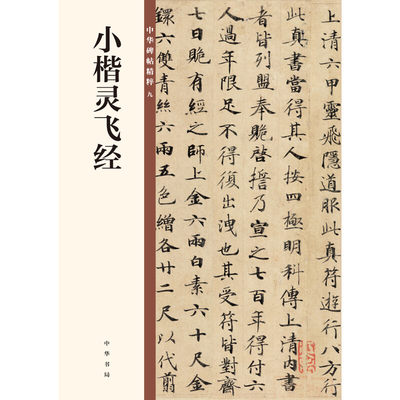 小楷灵飞经
中华碑帖精粹 九
中华书局
上清六甲靈飛隱道服此真符遊行八方行
此真書當得其人按四極明科傳上清内書
者皆列盟奉貺啓誓乃宣之七百年得付六
人過年限足不得復出洩也其受符皆對齊
七日貺有經之師上金六兩白素六十尺金
鐶六雙青絲六兩五色繒各廿二尺以代翦